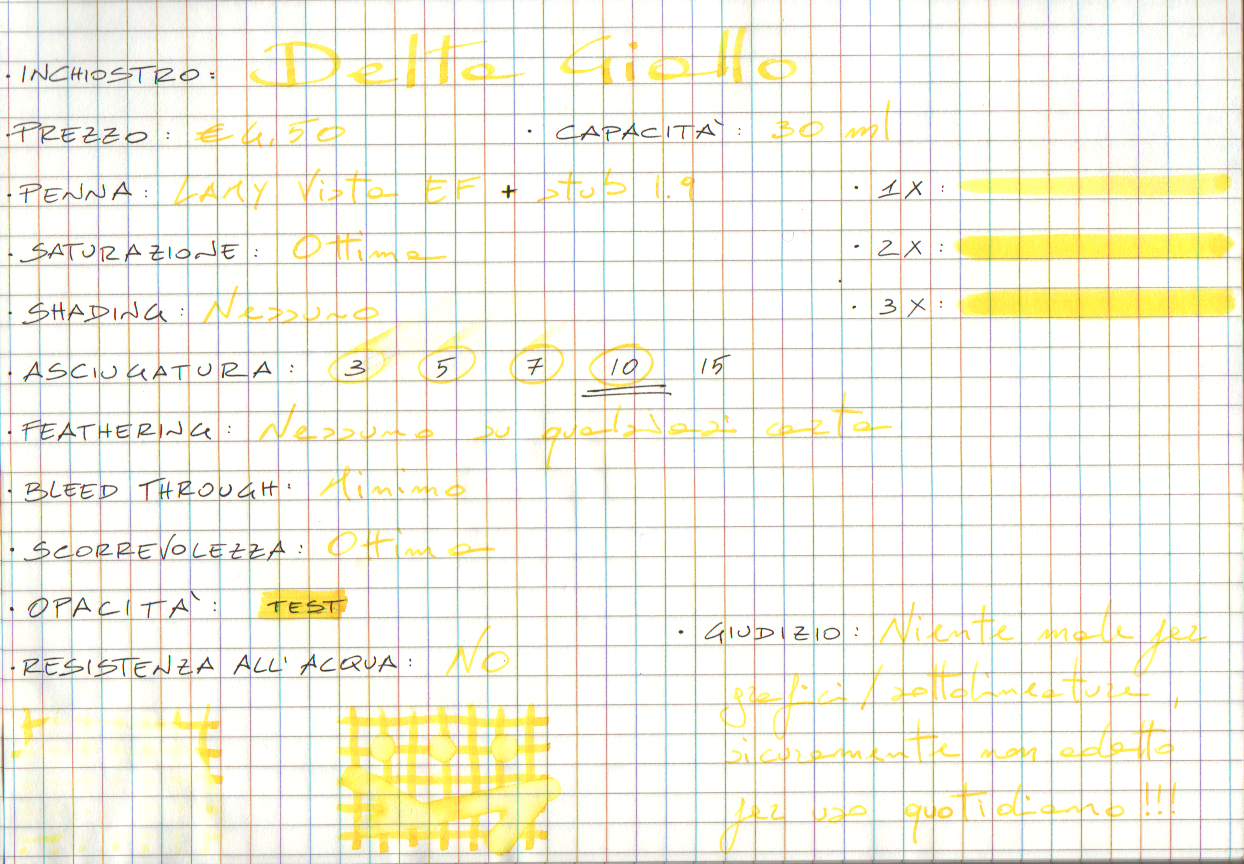 · INCHIOSTRO: Delta Giallo
· PREZZO: € 4,50 · CAPACITÀ: 30 ml
· PENNA: LAMY Vista EF + stub 1.9 · 1X:
· SATURAZIONE: Ottima · 2X:
· SHADING: Nessuno · 3X:
· ASCIUGATURA: 3 5 7 10 15
· FEATHERING: Nessuno su qualsiasi carta
· BLEED THROUGH: Minimo
· SCORREVOLEZZA: Ottima
· OPACITÀ: TEST
· RESISTENZA ALL'ACQUA: No
· GIUDIZIO: Niente male per
grafici/sottolineature,
sicuramente non adatto
per uso quotidiano!!!